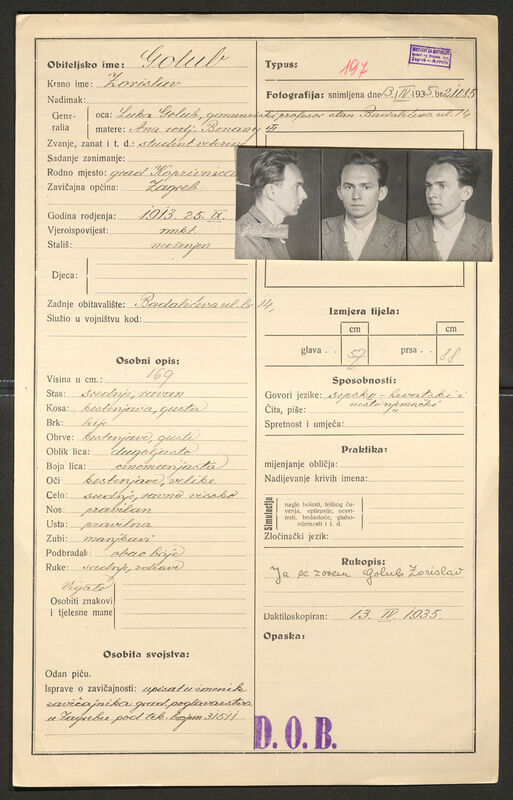 Obiteljsko ime: Golub
Krsno ime: Zorislav
Nadimak:
Gene-
ralia
oca: Luka Golub, gimnazijski profesor stan Badalićeva ul. 14
matere: Ana rodj.
Zvanje, zanat i t. d.: student
Sadanje zanimanje:
Rodno mjesto: grad Koprivnica
Zavičajna općina: Zagreb
Godina rodjenja: 1913. 25. IX.
Vjeroispovijest: rmkt.
Stališ: neoženjen
Djeca:
Zadnje obitavalište: Badalićeva ul. br. 14,
Služio u vojništvu kod:
Osobni opis:
Visina u cm.: 169
Stas: srednji, ravan
Kosa: kestenjava, gusta
Brk: brije
Obrve: kestenjave, guste
Oblik lica: dugoljasto
Boja lica: crnomanjasta
Oči kestenjave, velike
Čelo: srednje, ravno visoko
Nos: pravilan
Usta: pravilna
Zubi: manjkavi
Podbradak: obao brije
Ruke: srednje, zdrave
Osobiti znakovi
i tjelesne mane
Osobita svojstva:
Odan piću.
Isprave o zavičajnosti: upisat u imenik
zavičajnika grad. poglavarstva
u Zagrebu pod tek. brojem 31511
Typus:
197
Zagreb - Arhiv
Fotografija: snimljena dne 13. IV 1935. br. 21085
Izmjera tijela:
cm cm
glava . . 57 prsa . . 88
Sposobnosti:
Govori jezike: srpsko-hrvatski i
nešto njemački
Čita, piše: "
Spretnost i umjeća:
Praktika:
mijenjanje obličja:
Nadijevanje krivih imena:
Simulacija
nagle bolesti, teškog ču-
venja, epilepsije, nesvi-
jesti, bedastoće, gluho-
nijemosti i t. d.
Zločinački jezik:
Rukopis:
Ja se zovem Golub Zorislav
Daktiloskopiran: 13. IV. 1935.
Opaska:
D. O. B.